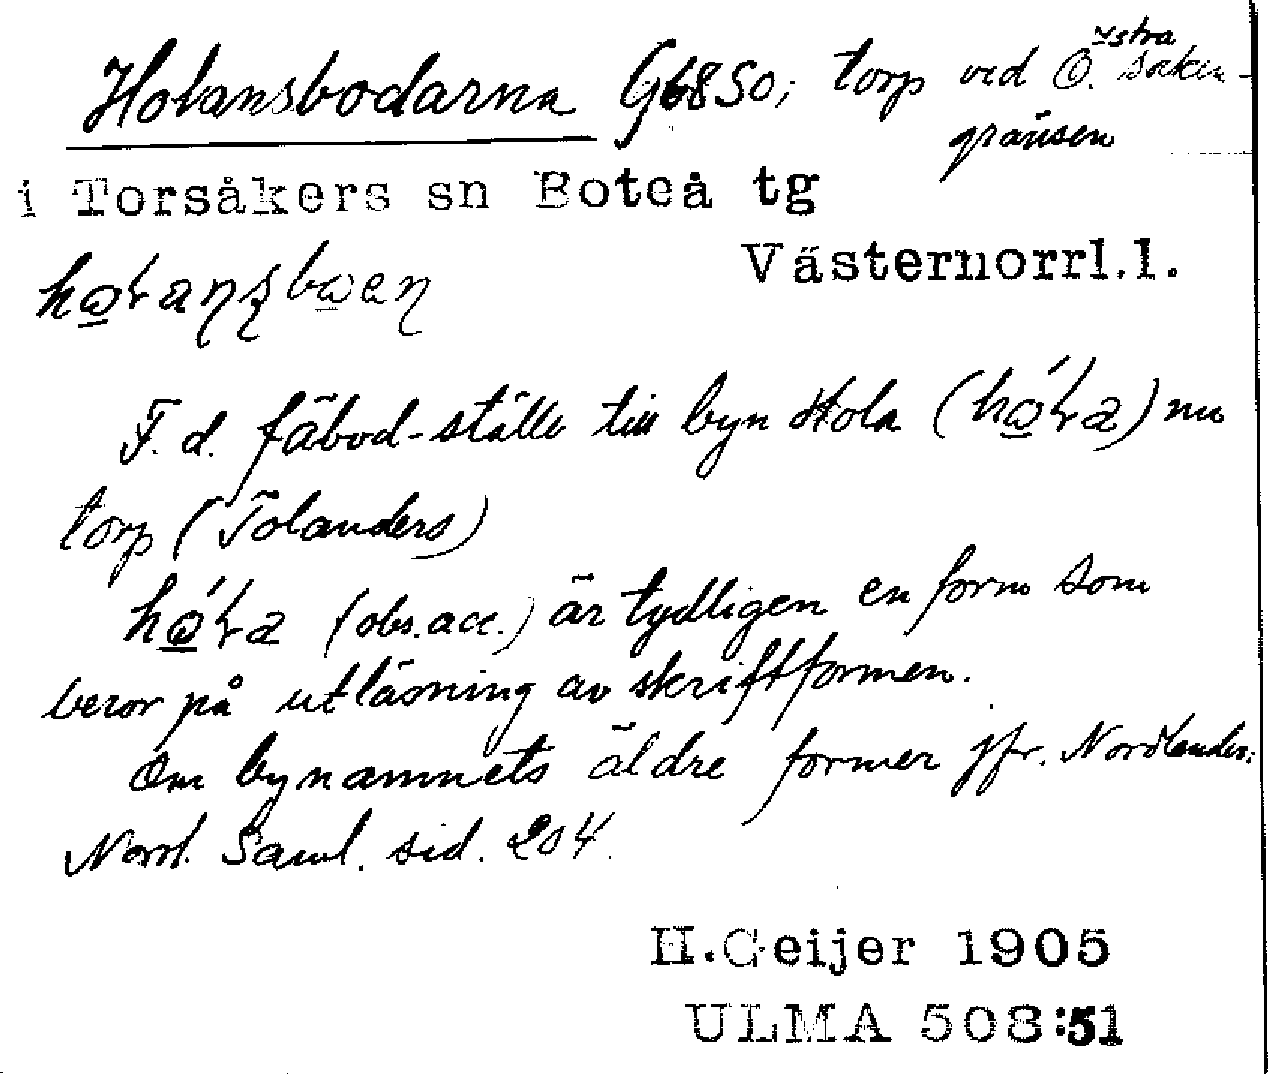 Holansbodarna G6850; torp ved Ö. stra
gränsen
i Torsåkers sn Boteå tg
Västernorrl.l.
F. d. fäbod-ställe till byn Hola (hɷ́ɽa) nu
torp (Tölanders)
hɷ́ɽa (obs. acc.) är tydligen en form som
beror på utläsning av skriftformen.
Om bynamnets äldre former jfr. Nordlander:
Norrl. Saml. sid. 204.
H.Geijer 1905
ULMA 508:51